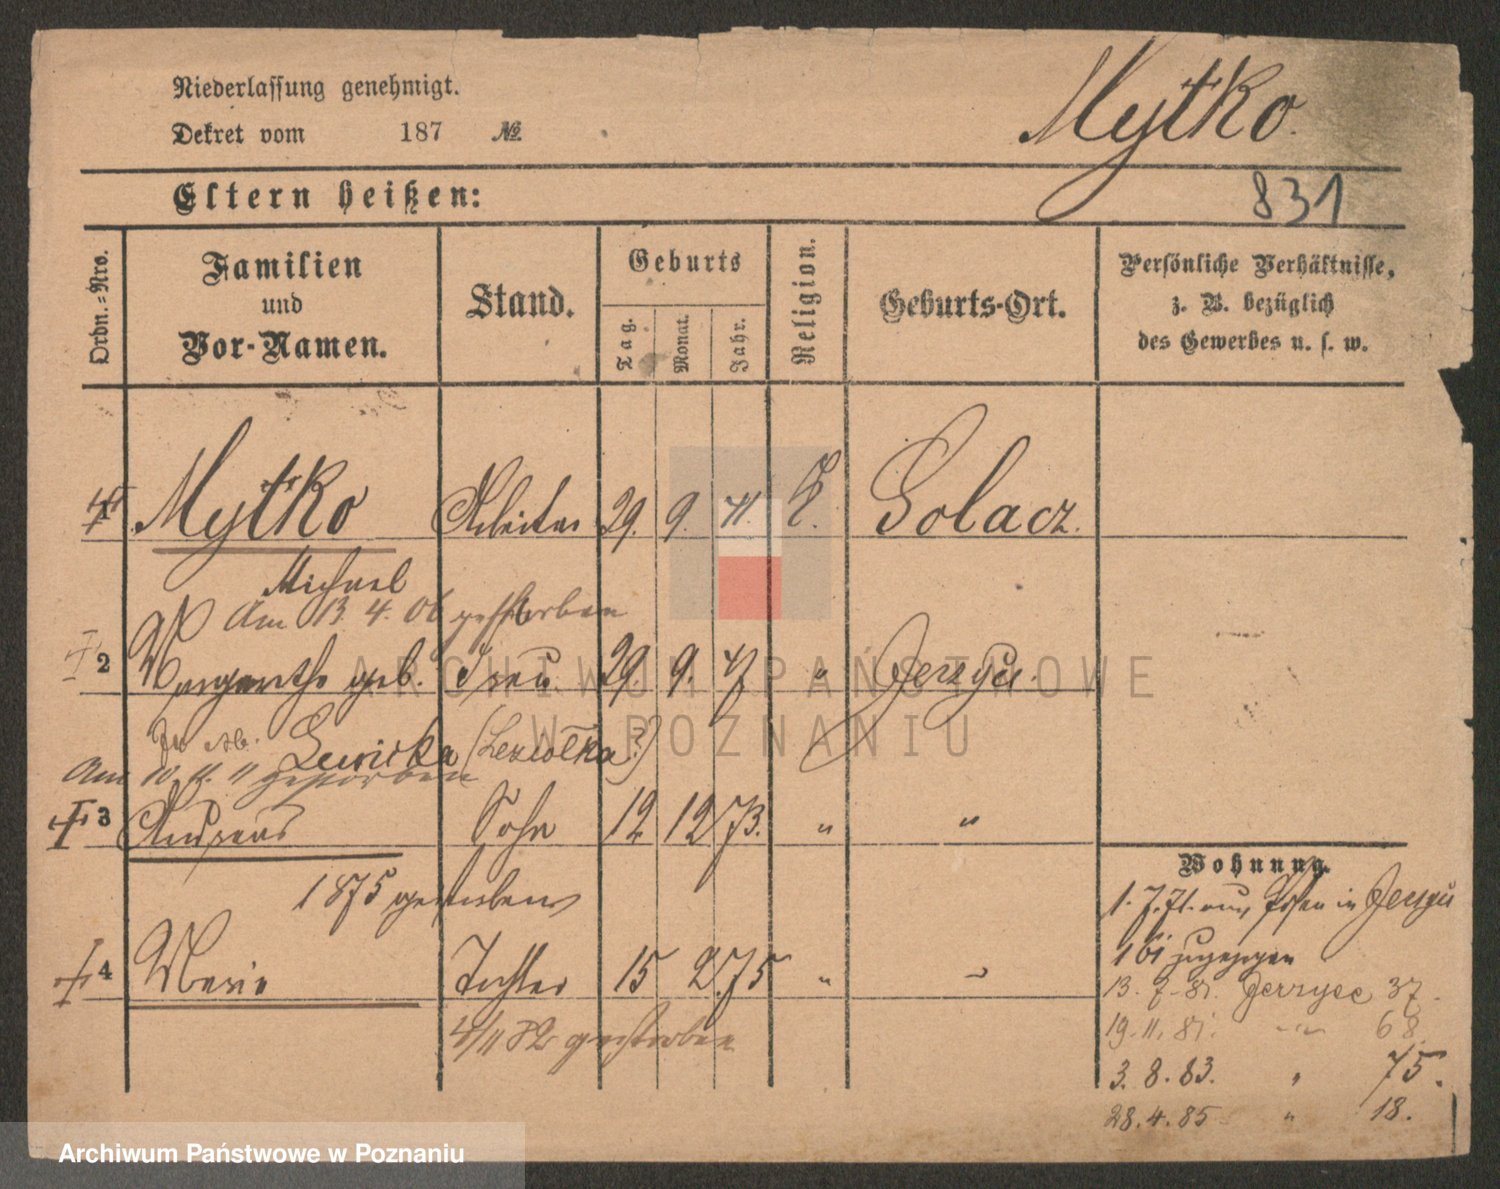 Niederlassung genehmigt.
Dekret vom 187 №
Mytko.
Eltern heißen:
831
Ordn.-Nro.
Familien und Vor-Namen.
Stand.
Geburts
Tag. Monat. Jahr.
Religion.
Geburts-Ort.
Persönliche Verhältnisse, z. B. bezüglich des Gewerbes u. s. w.
1 Mytko Arbeiter 29. 9. 41. K. Golacz.
Michael
Am 13. 4. 06 gestorben
2 Margarethe geb. Frau. 29. 9. 47 " Jerzyce.
Lewicka (Lewolka?)
Am 10. 11. 11 gestorben
3 Andreas Sohn 12 12 73. " "
1875 gestorben
4 Marie Tochter 15 2. 75 " "
4/11 82 gestorben
Wohnung.
1. 7. 71. aus Posen in Jerzyce
161 zugezogen
13. 7. 81. Jerzyce 37.
19. 11. 81. " 68.
3. 8. 83. " 75.
28. 4. 85 " 18.
ARCHIWUM PAŃSTWOWE
W POZNANIU
Archiwum Państwowe w Poznaniu